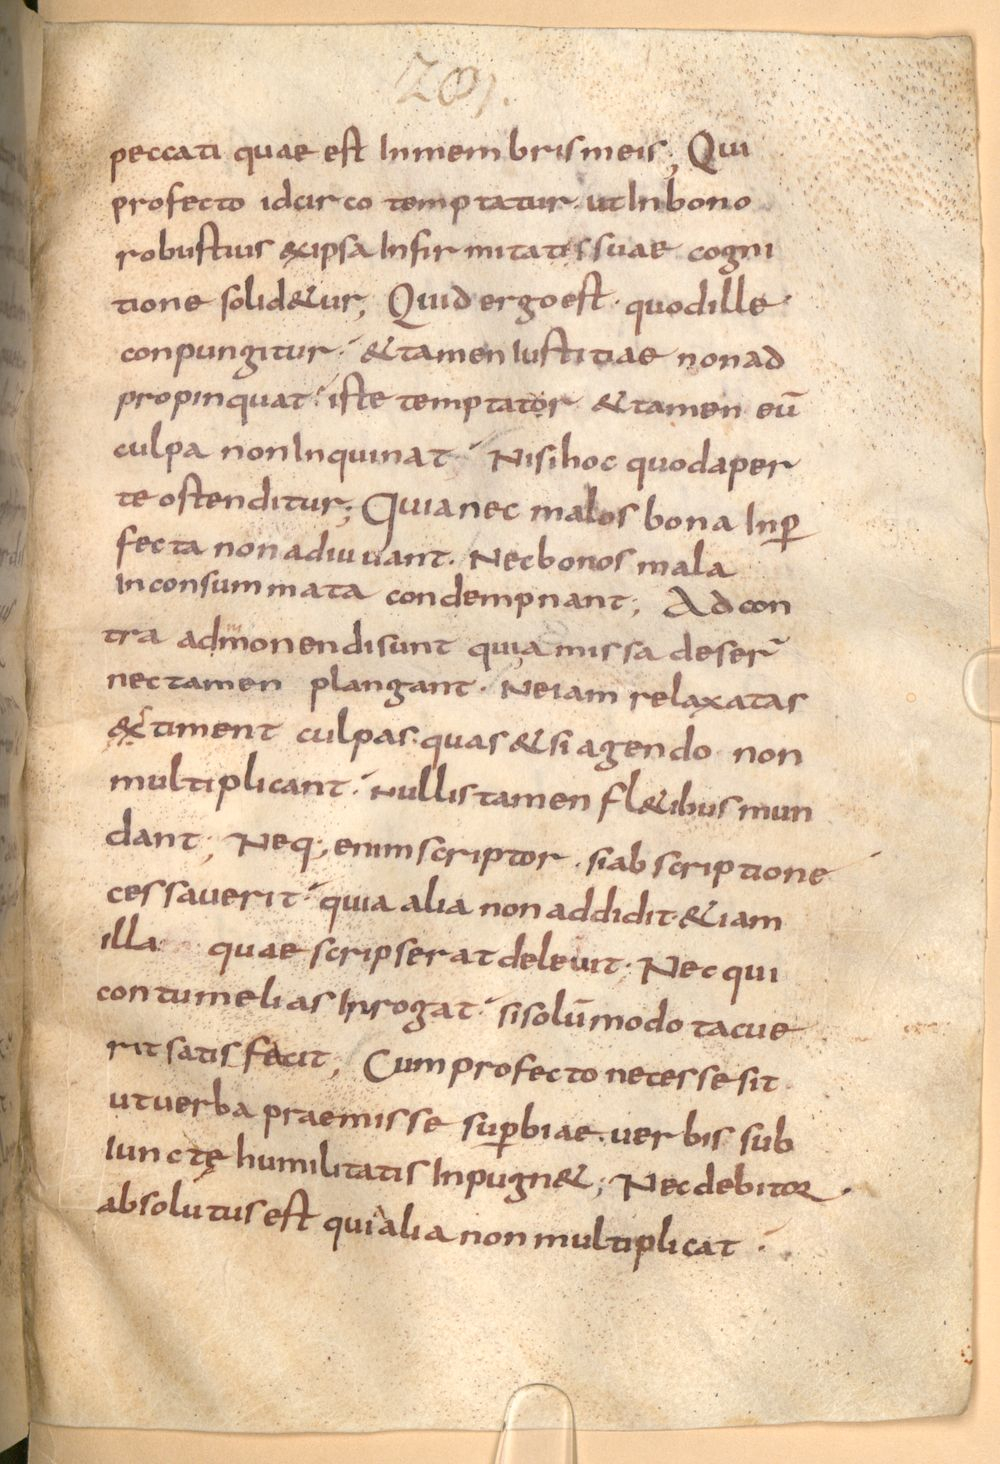 201.
peccati quae est Inmembrismeis; Qui
profecto idcirco temptatur. utInbono
robustius &ipsa Infirmitatissuae cogni
tione solid&ur; Quid ergoest. quodille
conpungitur. &tamen Iustitiae nonad
propinquat. iste temptator &tamen eū
culpa nonInquinat Nisihoc quodaper
te ostenditur; Quianec malos bona Inꝑ
fecta nonadiuuant. Necbonos mala
Inconsummata condempnant; Adcon
tra admonendisunt quia missa deser̃
nectamen plangant. Neiam relaxatas
&timent culpas. quas &si agendo non
multiplicant. nullis tamen fl&ibus mun
dant; Neq; enimscriptor. siabscriptione
cessauerit quia alia nonaddidit. &iam
illa quae scripserat deleuit. Nec qui
contumelias Inrogat sisolūmodo tacue
rit satisfecit; Cumprofecto necessesit
utuerba praemisse suꝑbiae. uerbis sub
Iunctę humilitatis Inpugn&; Necdebitor.
absolutusest quialia nonmultiplicat.